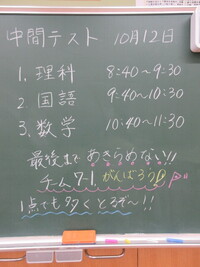 中間テスト 10月12日
1. 理科 8:40〜9:30
2. 国語 9:40〜10:30
3. 数学 10:40〜11:30
最後まであきらめない!!
チーム7-1 がんばろう
1点でも多くとるぞ〜!!